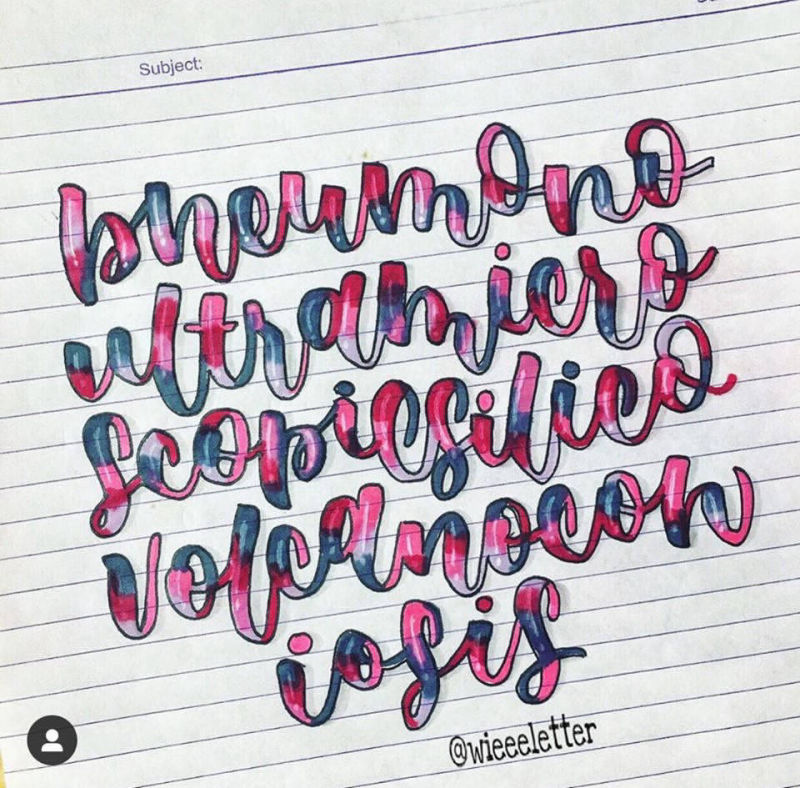 Subject:
pneumono
ultramicro
scopicsilico
volcanocon
iosis
@wieeeletter